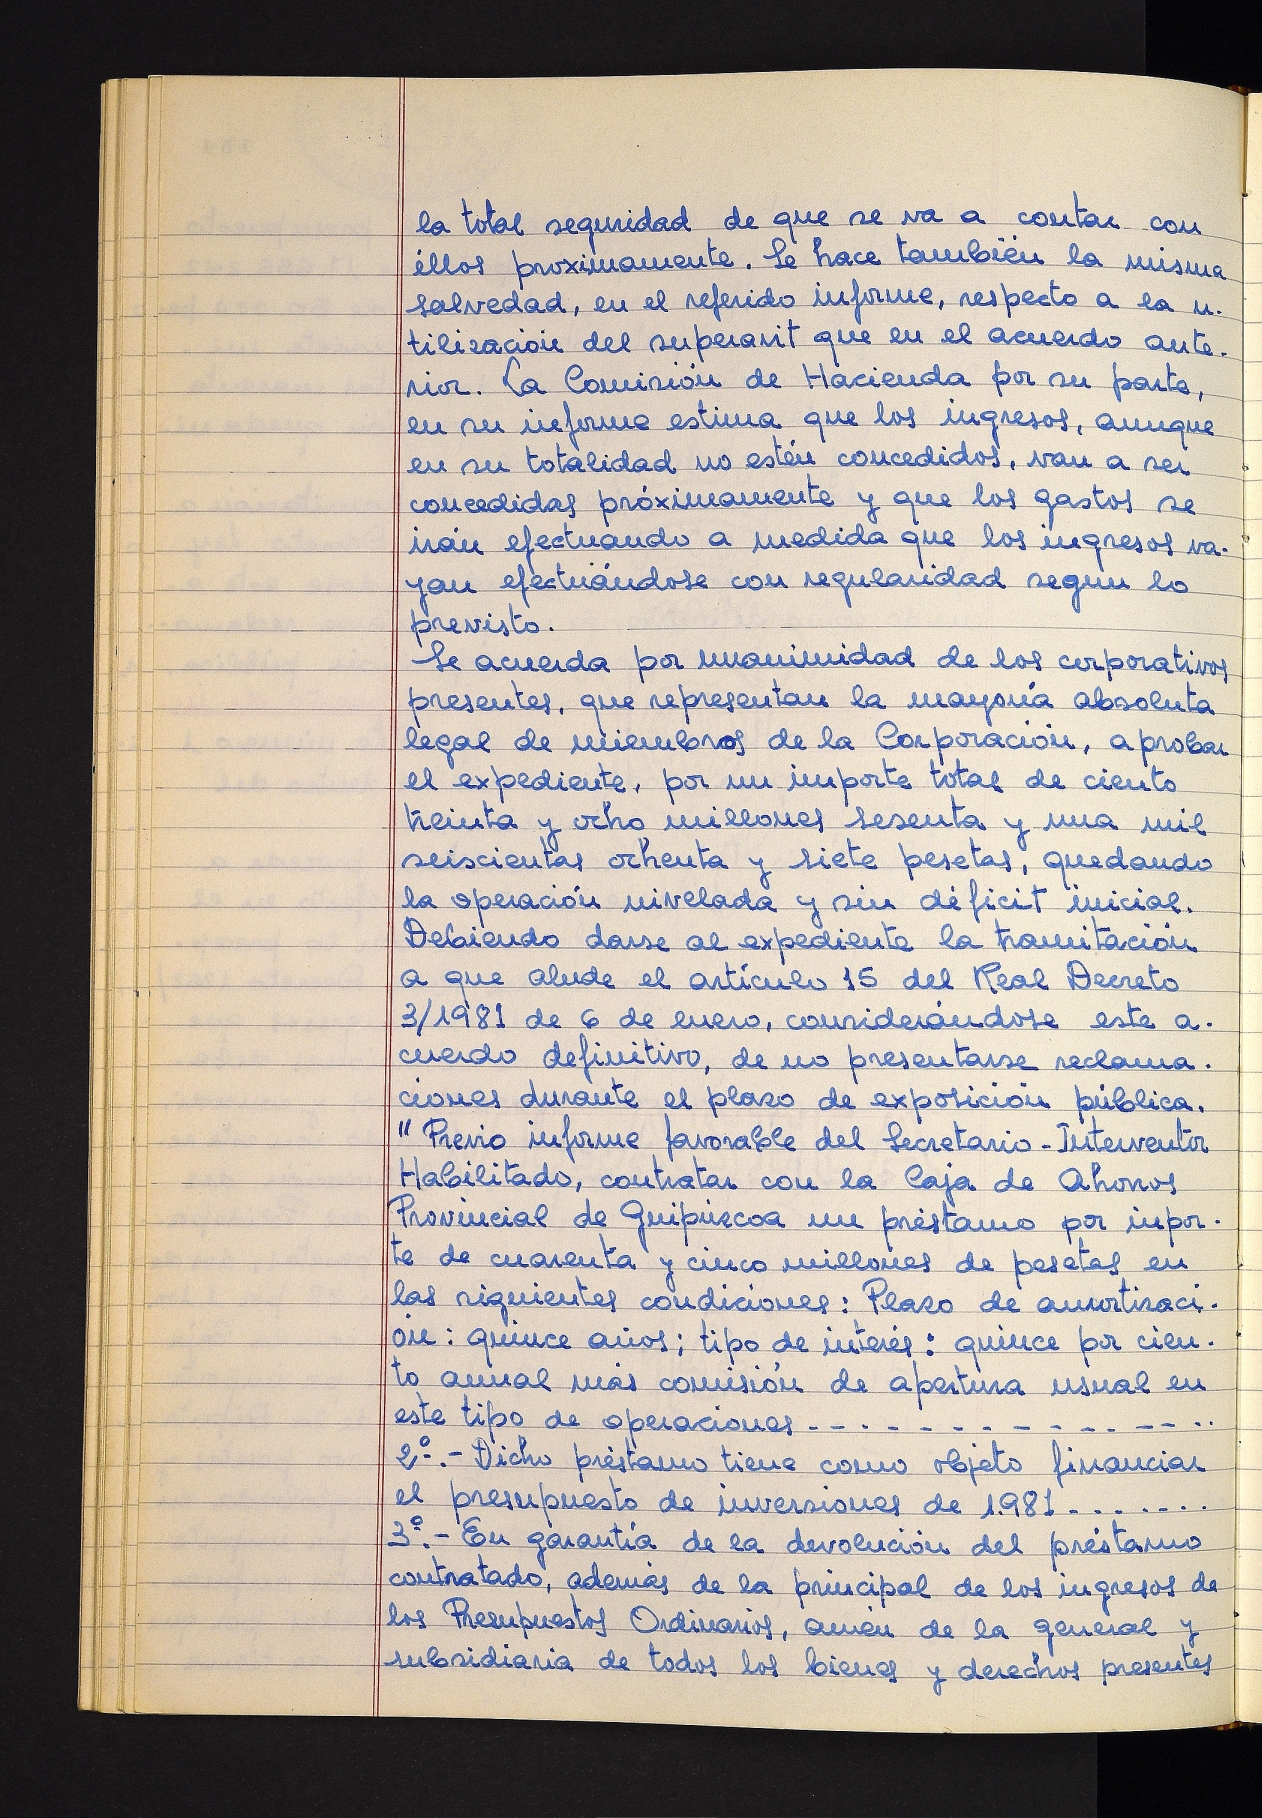 la total seguridad de que se va a contar con
éllos proximamente. Se hace también la misma
salvedad, en el referido informe, respecto a la u-
tilización del superavit que en el acuerdo ante-
rior. La Comisión de Hacienda por su parte,
en su informe estima que los ingresos, aunque
en su totalidad no estén concedidos, van a ser
concedidas próximamente y que los gastos se
irán efectuando a medida que los ingresos va-
yan efectuándose con regularidad segun lo
previsto.
Se acuerda por unanimidad de los corporativos
presentes, que representan la mayoría absoluta
legal de miembros de la Corporación, aprobar
el expediente, por un importe total de ciento
treinta y ocho millones sesenta y una mil
seiscientas ochenta y siete pesetas, quedando
la operación nivelada y sin déficit inicial.
Debiendo darse al expediente la tramitación
a que alude el artículo 15 del Real Decreto
3/1981 de 6 de enero, considerándose este a-
cuerdo definitivo, de no presentarse reclama-
ciones durante el plazo de exposición pública.
" Previo informe favorable del Secretario-Interventor
Habilitado, contratar con la Caja de Ahorros
Provincial de Guipúzcoa un préstamo por impor-
te de cuarenta y cinco millones de pesetas en
las siguientes condiciones: Plazo de amortizaci-
ón: quince años; tipo de interés: quince por cien-
to anual más comisión de apertura usual en
este tipo de operaciones - - - - - - - - - - - - - - -
2º.- Dicho préstamo tiene como objeto financiar
el presupuesto de inversiones de 1.981 - - - - - - -
3º.- En garantía de la devolución del préstamo
contratado, además de la principal de los ingresos de
los Presupuestos Ordinarios, amén de la general y
subsidiaria de todos los bienes y derechos presentes